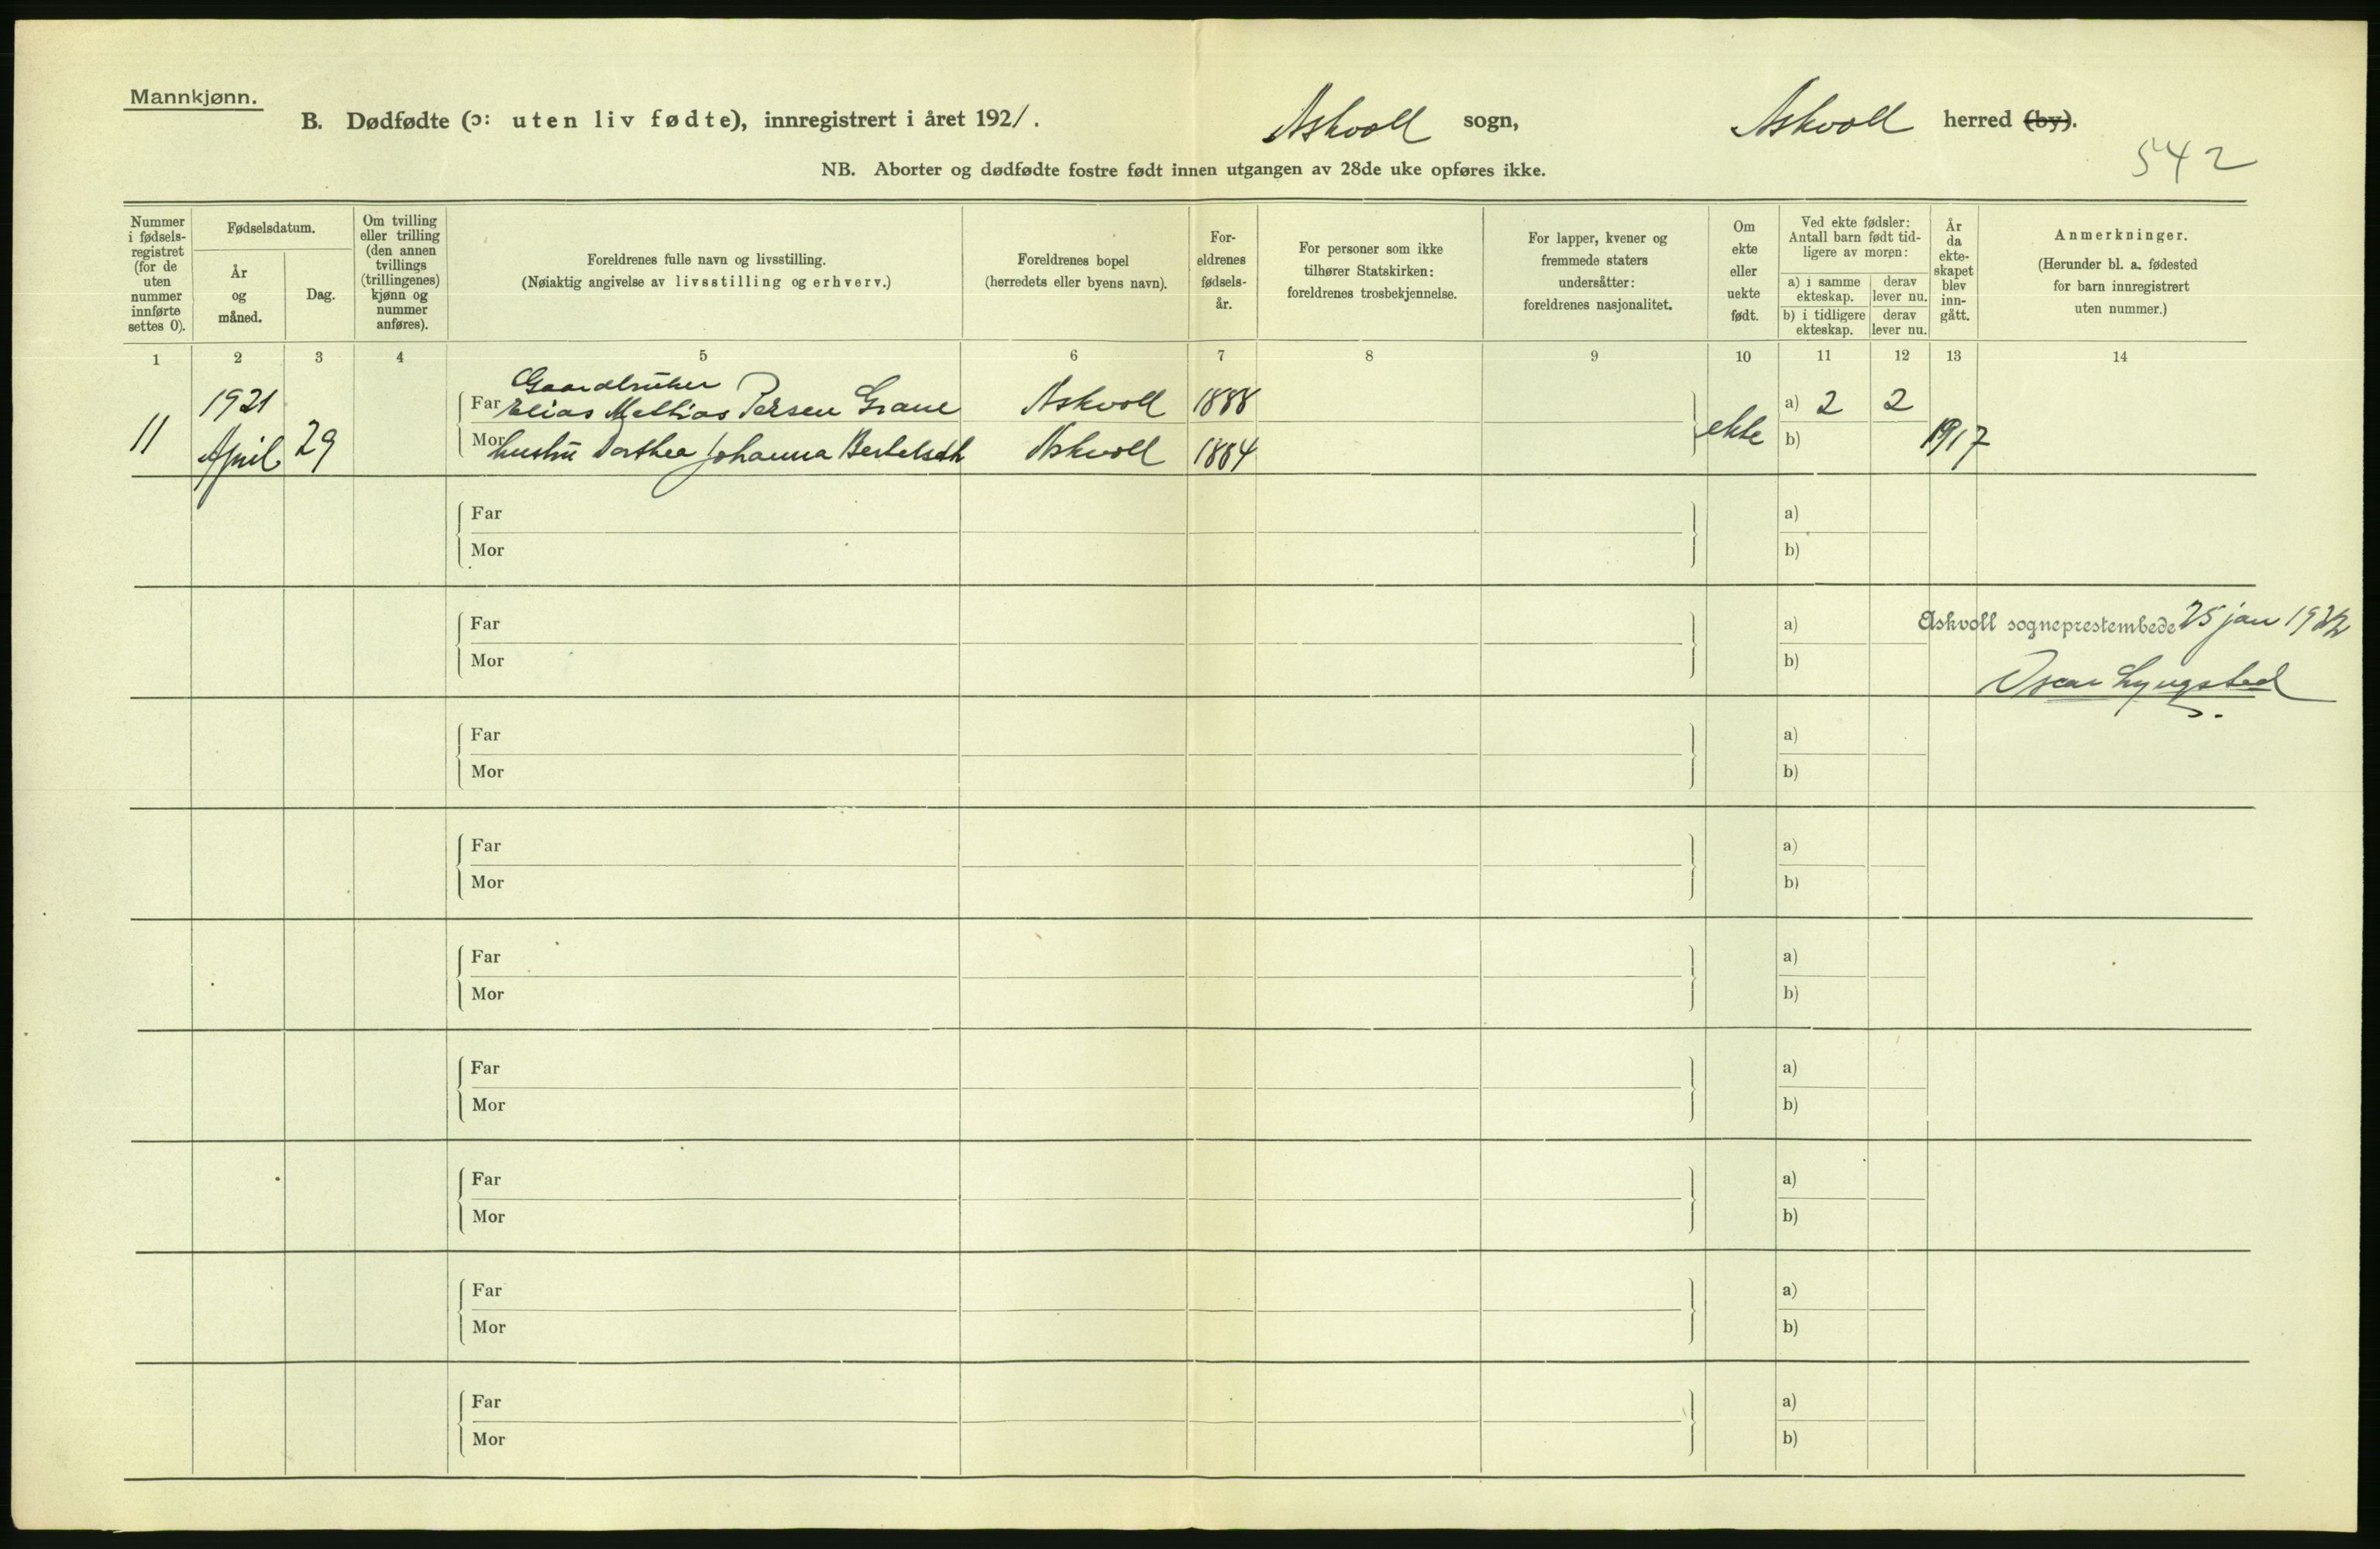 Mannkjønn.
B. Dødfødte (ɔ: uten liv fødte), innregistrert i året 1921. Askvoll sogn, Askvoll herred (by).
542
NB. Aborter og dødfødte fostre født innen utgangen av 28de uke opføres ikke.
Nummer i fødsels-registret (for de uten nummer innførte settes 0).
Fødselsdatum.
År og måned.
Dag.
Om tvilling eller trilling (den annen tvillings (trillingenes) kjønn og nummer anføres).
Foreldrenes fulle navn og livsstilling.
(Nøiaktig angivelse av livsstilling og erhverv.)
Foreldrenes bopel
(herredets eller byens navn).
For-eldrenes fødsels-år.
For personer som ikke tilhører Statskirken: foreldrenes trosbekjennelse.
For lapper, kvener og fremmede staters undersåtter: foreldrenes nasjonalitet.
Om ekte eller uekte født.
Ved ekte fødsler: Antall barn født tid-ligere av moren:
a) i samme ekteskap.
derav lever nu.
b) i tidligere ekteskap.
derav lever nu.
År da ekte-skapet blev inn-gått.
Anmerkninger.
(Herunder bl. a. fødested for barn innregistrert uten nummer.)
1 2 3 4 5 6 7 8 9 10 11 12 13 14
Gaardbruker
1921 Far Elias Mathias Persen Grane Askvoll 1888 a) 2 2
11 April 29 Mor hustru Dorthea Johanna Bertelsdt Askvoll 1884 ekte b) 1917
Far a)
Mor b)
Far a) Askvoll sogneprestembede 25 jan 1922
Mor b)
Oscar Lyngstad
Far a)
Mor b)
Far a)
Mor b)
Far a)
Mor b)
Far a)
Mor b)
Far a)
Mor b)
Far a)
Mor b)
Far a)
Mor b)